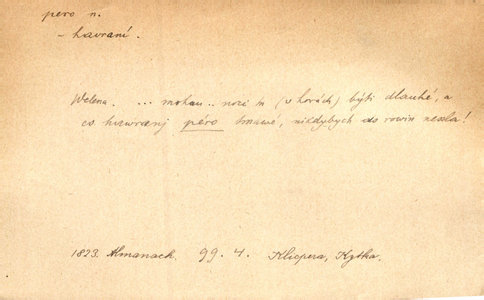 pero n.
– havraní.
Welena. ... mohau .. noci m (w horách) býti dlauhé, a
co hawranj péro tmawé, nikdybych do rowin nesla!
1823. Almanach. 99. 4. Klicpera, Kytka.